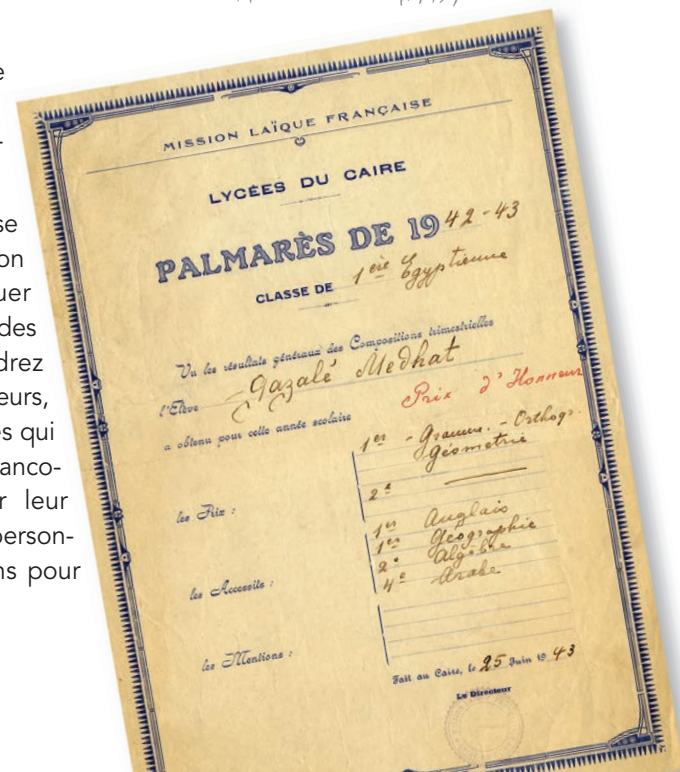 se
on
uer
des
drez
eurs,
es qui
anco-
r leur
person-
ns pour
MISSION LAÏQUE FRANÇAISE
LYCÉES DU CAIRE
PALMARÈS DE 1942-43
CLASSE DE 1ère Egyptienne
Vu les résultats généraux des Compositions trimestrielles
l'Elève Gazalé Medhat
a obtenu pour cette année scolaire Prix d'Honneur
les Prix :
1er - Gramm. - Orthogr.
Géométrie
2e
les Accessits :
1er Anglais
1er Géographie
2e Algèbre
4e Arabe
les Mentions :
Fait au Caire, le 25 Juin 1943
Le Directeur